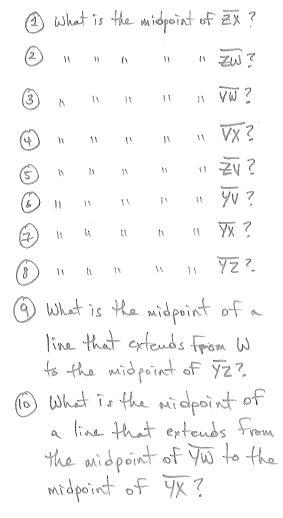 ① What is the midpoint of ZX?
② " " " " " ZW?
③ " " " " " VW?
④ " " " " " VX?
⑤ " " " " " ZV?
⑥ " " " " " YV?
⑦ " " " " " YX?
⑧ " " " " " YZ?
⑨ What is the midpoint of a
line that extends from W
to the midpoint of YZ?
⑩ What is the midpoint of
a line that extends from
the midpoint of YW to the
midpoint of YX?